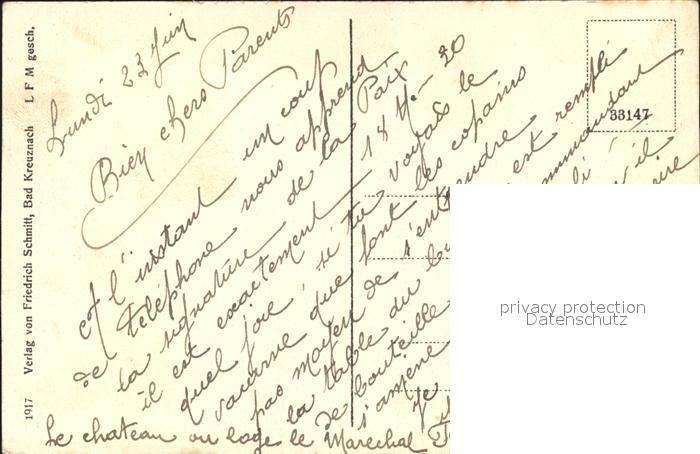 Lundi 23 Juin
Bien chers Parents
A l'instant un coup
de téléphone nous apprend
la signature de la Paix
il est exactement 18 h - 20
quel joie, si tu voyais le
vacarme que font les copains
pas moyen de s'entendre
la table du est rempli
de bouteille commandant
s'amène
Je
Le chateau ou loge le Marechal
33147
1917 Verlag von Friedrich Schmitt, Bad Kreuznach L F M gesch.
privacy protection
Datenschutz